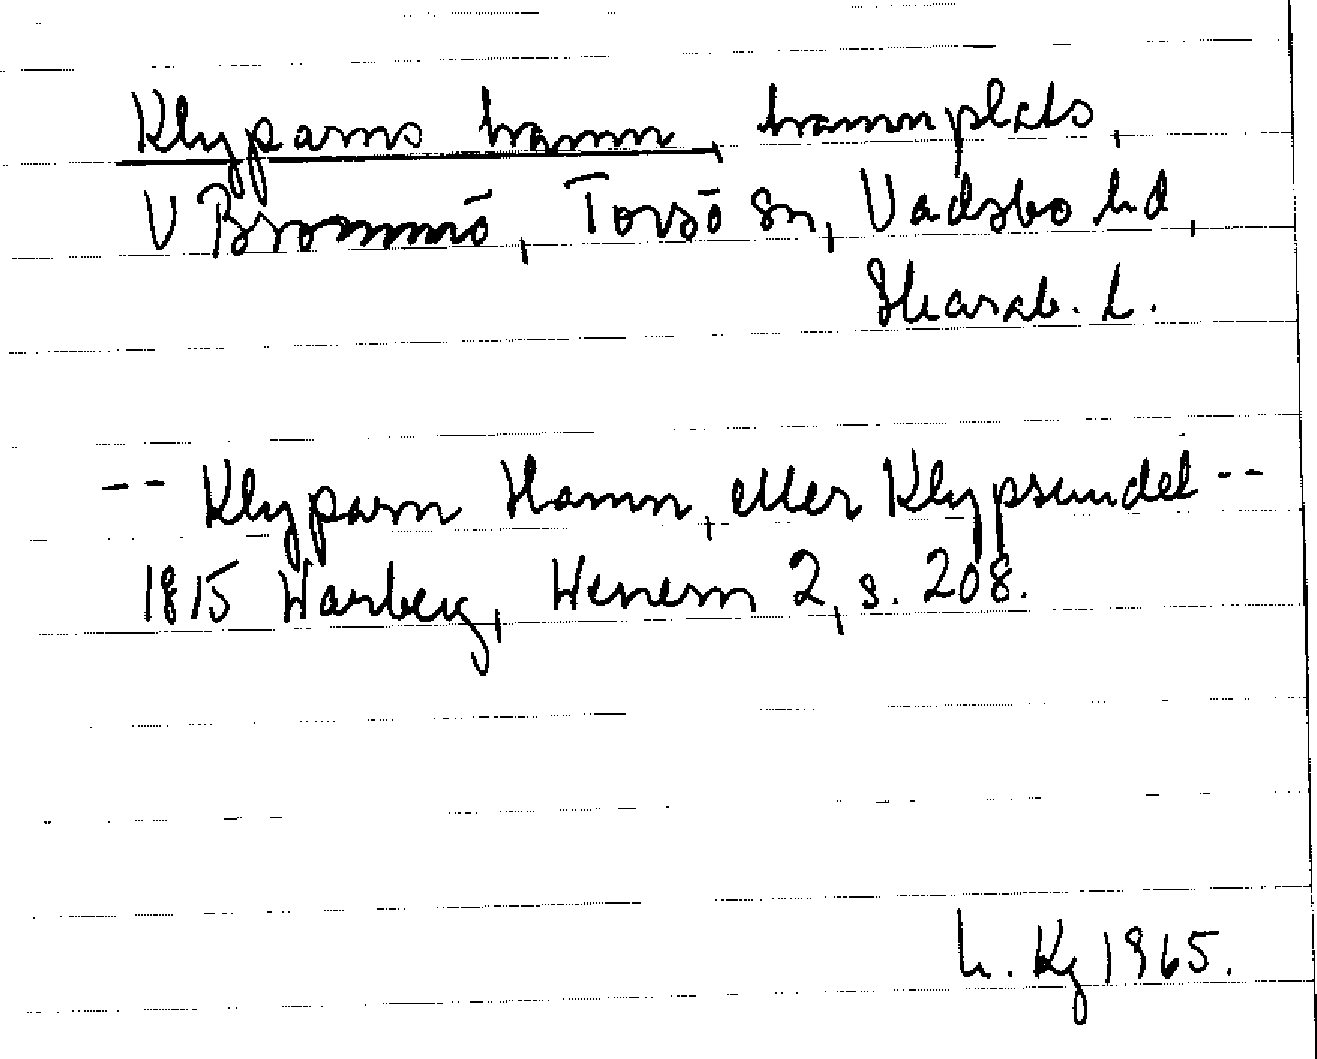 Klyparns hamn, hamnplats,
V Brommö, Torsö sn, Vadsbo hd,
Skarab. l.
-- Klyparn Hamn, eller Klypsundet --
1815 Warberg, Wenern 2, s. 208.
L. Kg 1965.